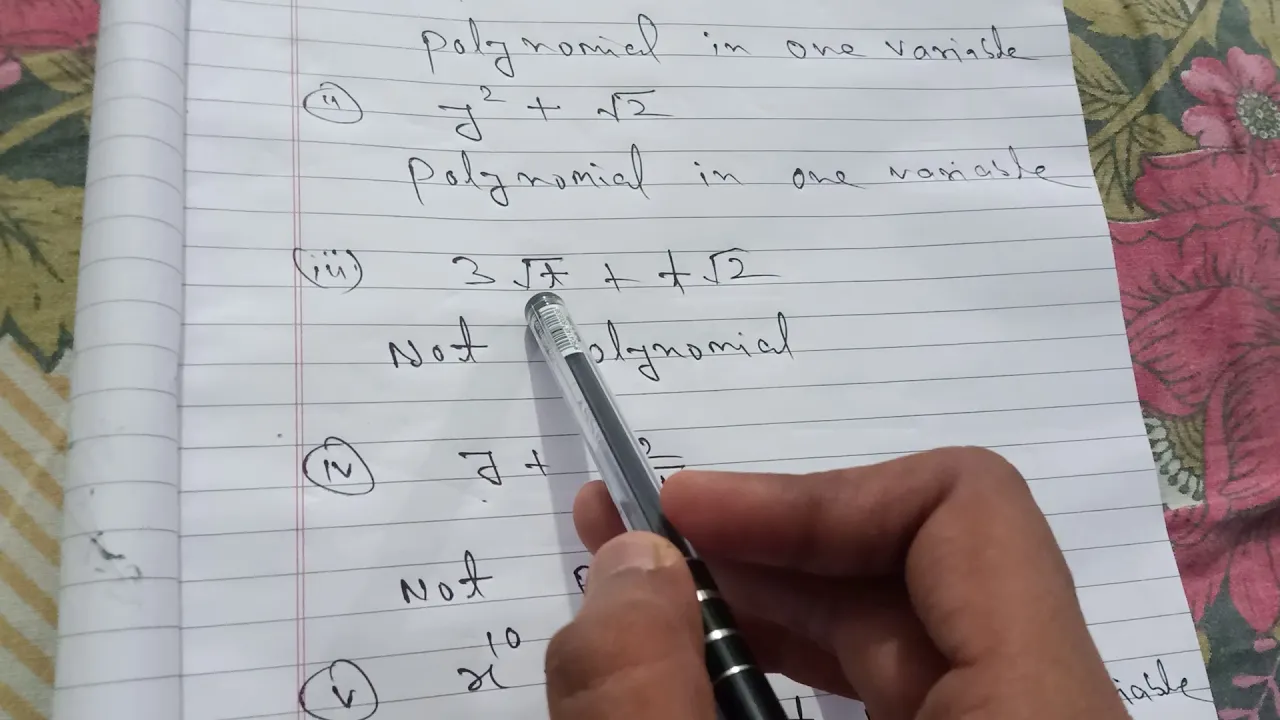 polynomial in one variable
(ii) y² + √2
polynomial in one variable
(iii) 3 √t + t√2
Not polynomial
(iv) y + 2
Not
(v) x¹⁰